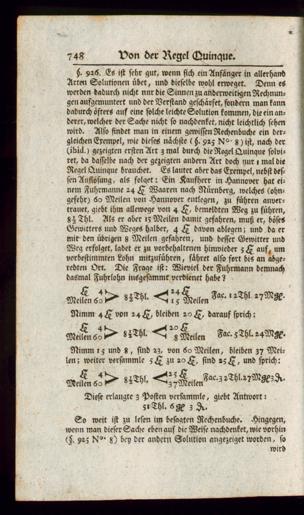 748 Von der Regel Quinque.
§. 926. Es ist sehr gut, wenn sich ein Anfänger in allerhand
Arten Solutionen übet, und dieselbe wohl erweget. Denn es
werden dadurch nicht nur die Sinnen zu anderweitigen Rechnun-
gen aufgemuntert und der Verstand geschärfet, sondern man kann
dadurch öfters auf eine solche leichte Solution kommen, die ein an-
derer, welcher der Sache nicht so nachdenket, nicht leichtlich sehen
wird. Also findet man in einem gewissen Rechenbuche ein der-
gleichen Exempel, wie dieses nächste (§. 925 No. 8) ist, nach der
(ibid.) gezeigten ersten Art 3 mal durch die Regel Quinque solvi-
ret, da dasselbe nach der gezeigten andern Art doch nur 1 mal die
Regel Quinque brauchet. Es lautet aber das Exempel, nebst des-
sen Auflösung, als folget: Ein Kaufherr in Hannover hat ei-
nem Fuhrmanne 24 ℔ Waaren nach Nürnberg, welches (ohn-
gefehr) 60 Meilen von Hannover entlegen, zu führen anver-
trauet, giebt ihm allewege von 4 ℔, bemeldten Weg zu führen,
8⅔ Thl. Als er aber 15 Meilen damit gefahren, muß er, böses
Gewitters und Weges halber, 4 ℔ davon ablegen; und da er
mit den übrigen 8 Meilen gefahren, und besser Gewitter und
Weg erfolget, ladet er zu vorbehaltenen hinwieder 5 ℔ auf, um
vorbestimmten Lohn mitzuführen, fähret also fort bis an abge-
redten Ort. Die Frage ist: Wieviel der Fuhrmann demnach
dasmal Fuhrlohn insgesammt verdienet habe?
℔ 4 24 ℔
Meilen 60 8⅔ Thl. 15 Meilen Fac. 12 Thl. 27 Mgr.
Nimm 4 ℔ von 24 ℔, bleiben 20 ℔. darauf sprich:
℔ 4 20 ℔
Meilen 60 8⅔ Thl. 8 Meilen Fac. 5 Thl. 24 Mgr.
Nimm 15 und 8, sind 23. von 60 Meilen, bleiben 37 Mei-
len; weiter versammle 5 ℔ zu 20 ℔, sind 25 ℔, und sprich:
℔ 4 25 ℔
Meilen 60 8⅔ Thl. 37 Meilen Fac. 32 Thl. 27 Mgr. 3 ₰.
Diese erlangte 3 Posten versammle, giebt Antwort:
51 Thl. 6 gr. 3 ₰.
So weit ist zu lesen im besagten Rechenbuche. Hingegen,
wenn man dieser Sache eben auf die Weise nachdenket, wie vorhin
(§. 925 No. 8) bey der andern Solution angezeiget worden, so
wird